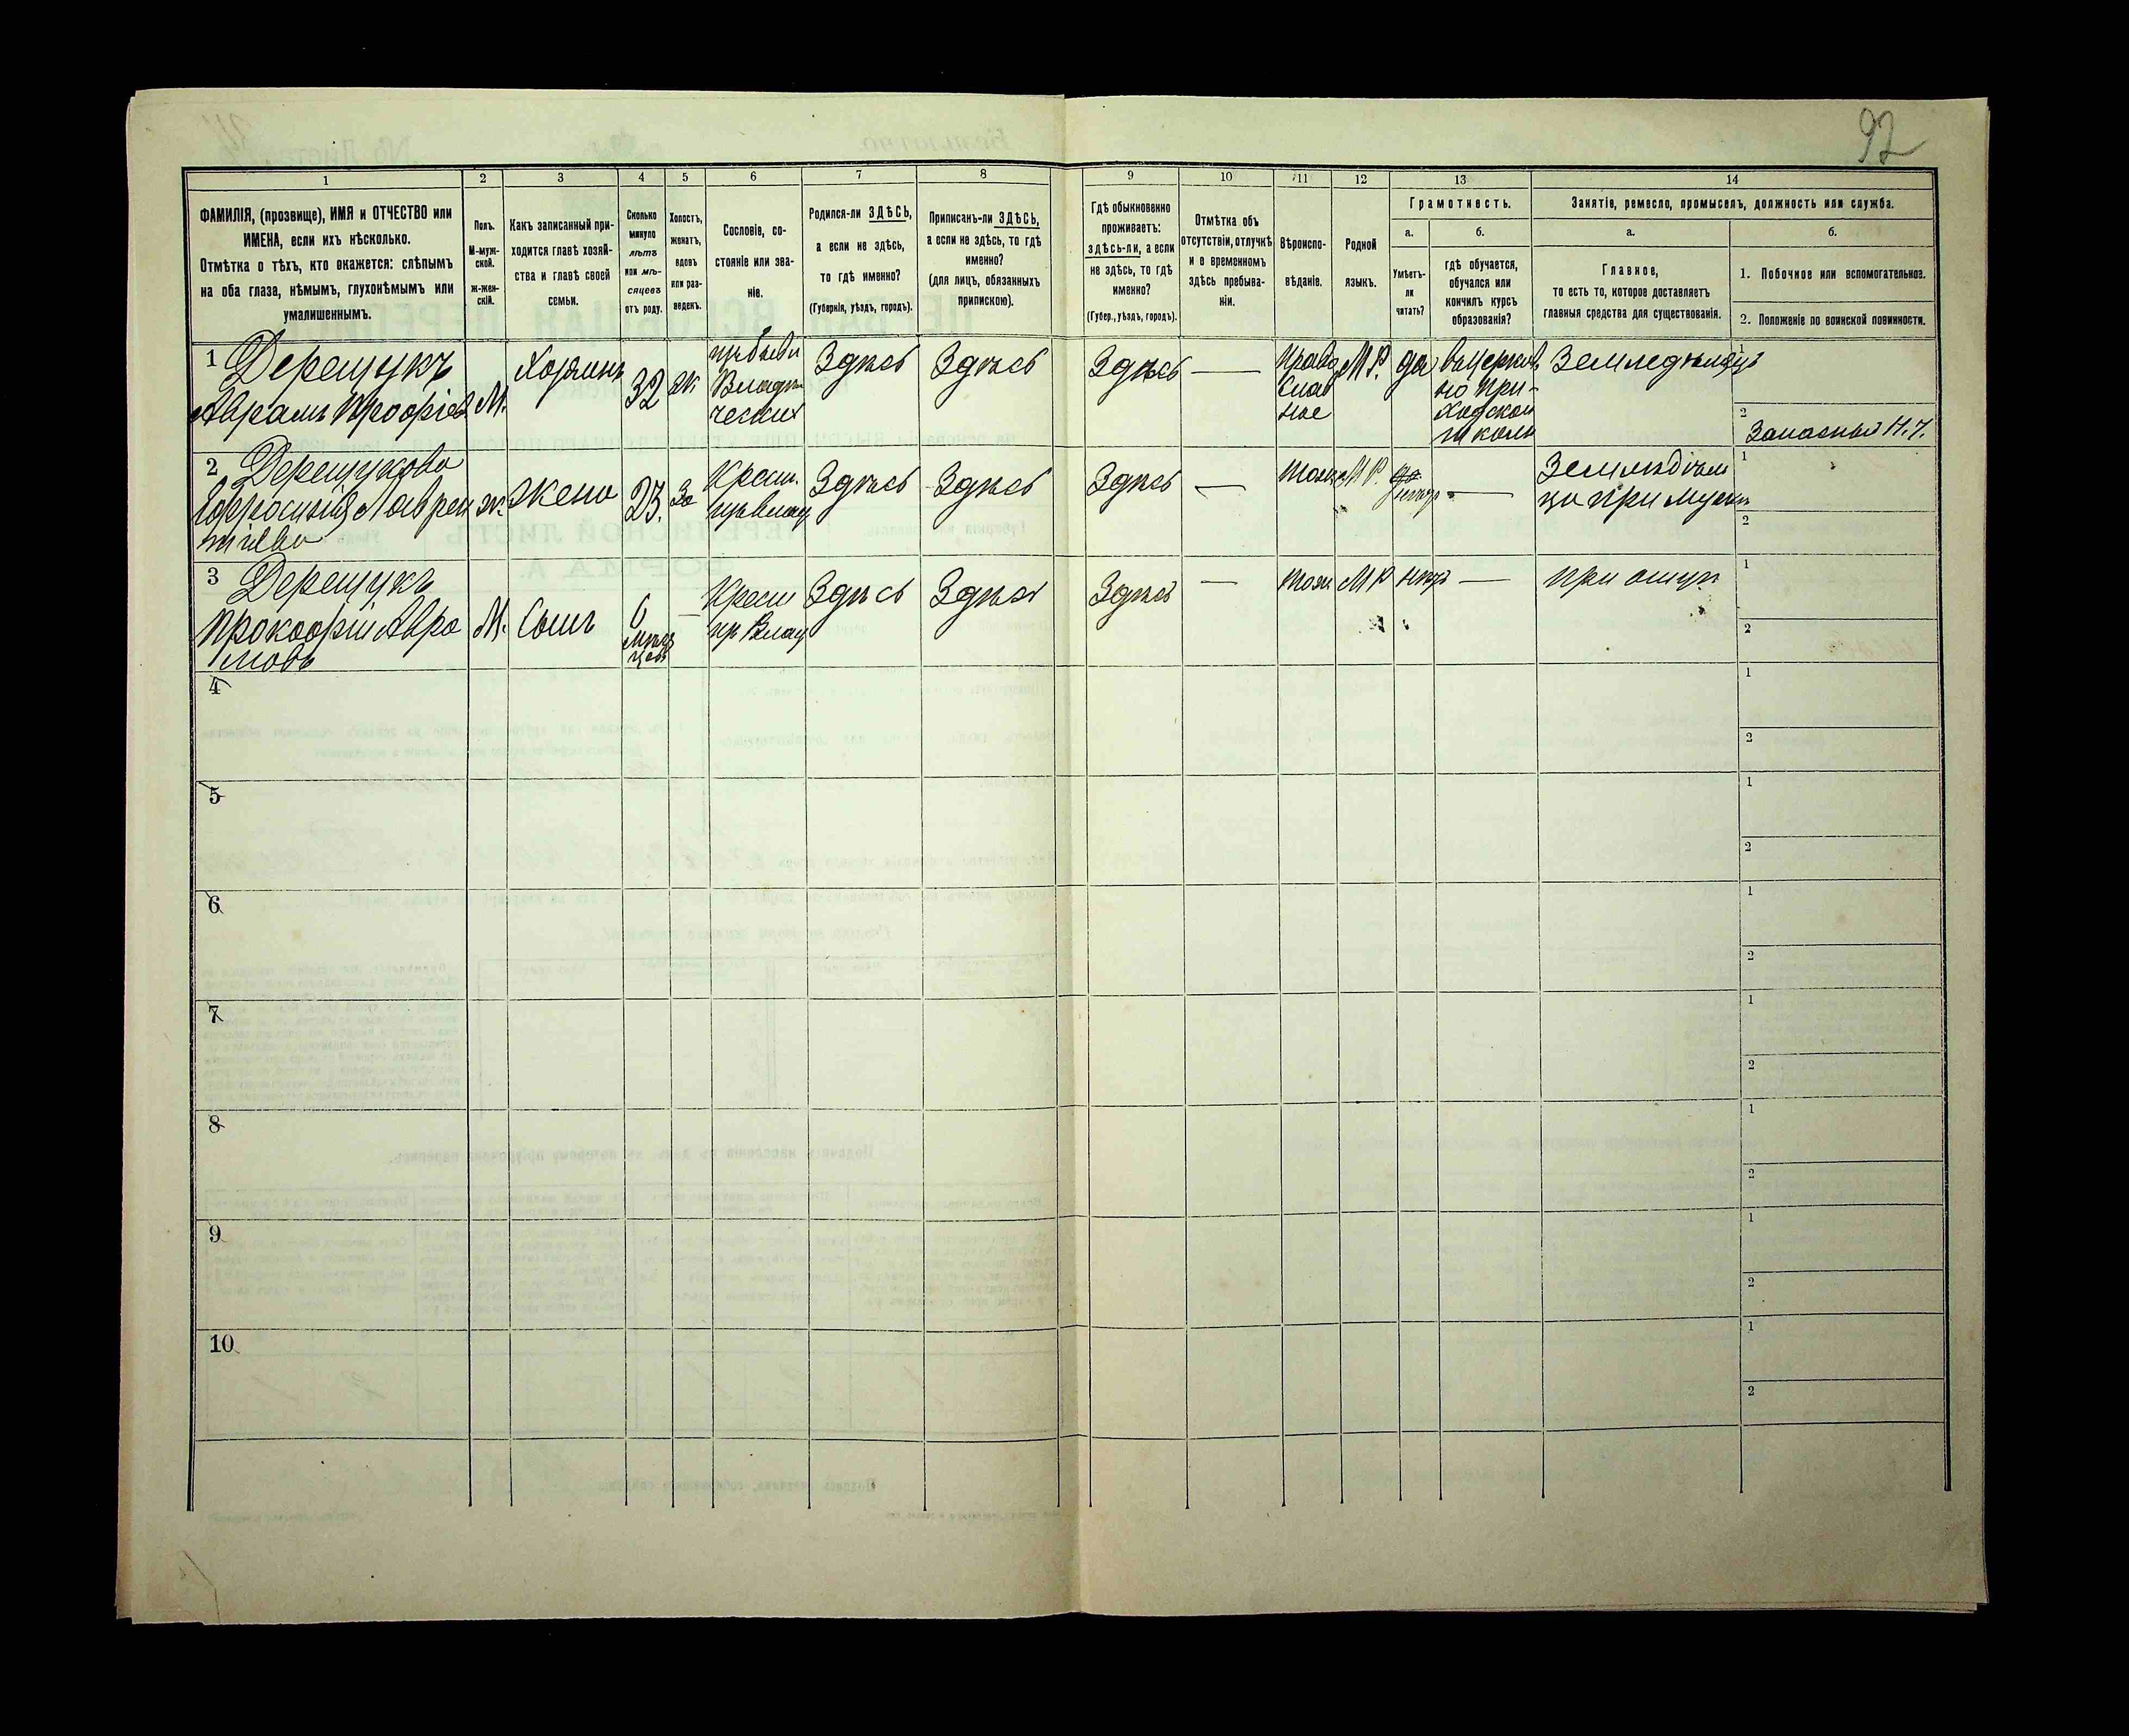 92
1
2
3
4
5
6
7
8
9
10
11
12
13
14
ФАМИЛІЯ, (прозвище), ИМЯ и ОТЧЕСТВО или
ИМЕНА, если ихъ нѣсколько.
Отмѣтка о тѣхъ, кто окажется: слѣпымъ
на оба глаза, нѣмымъ, глухонѣмымъ или
умалишеннымъ.
Полъ.
М-муж-
ской.
Ж-жен-
скій.
Какъ записанный при-
ходится главѣ хозяй-
ства и главѣ своей
семьи.
Сколько
минуло
лѣтъ
или мѣ-
сяцевъ
отъ роду.
Холостъ,
женатъ,
вдовъ
или раз-
веденъ.
Сословіе, со-
стояніе или зва-
ніе.
Родился-ли ЗДѢСЬ,
а если не здѣсь,
то гдѣ именно?
(Губернія, уѣздъ, городъ).
Приписанъ-ли ЗДѢСЬ,
а если не здѣсь, то гдѣ
именно?
(для лицъ, обязанныхъ
припискою).
Гдѣ обыкновенно
проживаетъ:
здѣсь-ли, а если
не здѣсь, то гдѣ
именно?
(Губер., уѣздъ, городъ).
Отмѣтка объ
отсутствіи, отлучкѣ
и о временномъ
здѣсь пребыва-
ніи.
Вѣроиспо-
вѣданіе.
Родной
языкъ.
Грамотность.
а.
Умѣетъ-
ли
читать?
б.
гдѣ обучается,
обучался или
кончилъ курсъ
образованія?
Занятіе, ремесло, промыселъ, должность или служба.
а.
Главное,
то есть то, которое доставляетъ
главныя средства для существованія.
б.
1. Побочное или вспомогательное.
2. Положеніе по воинской повинности.
1 Дерещукъ
Аврамъ
М.
Хозяинъ
32
Здѣсь
Здѣсь
Здѣсь —
Право
слав
ное
М Р.
да
въ церков
но при-
ходской
школѣ
Земледѣлецъ
1
2
Запасный
2 Дерещукова
Ж.
Жена
23.
За
Крест.
Здѣсь
Здѣсь
Здѣсь
—
тоже
М Р.
нѣтъ
—
при мужѣ
1
2
3 Дерещукъ
Прокофій Авра
мовъ
М.
Сынъ
6
мѣся
цевъ
—
Крест
Здѣсь
Здѣсь
Здѣсь
—
тоже
М Р
нѣтъ
—
при отцѣ
1
2
4
1
2
5
1
2
6
1
2
7
1
2
8
1
2
9
1
2
10
1
2